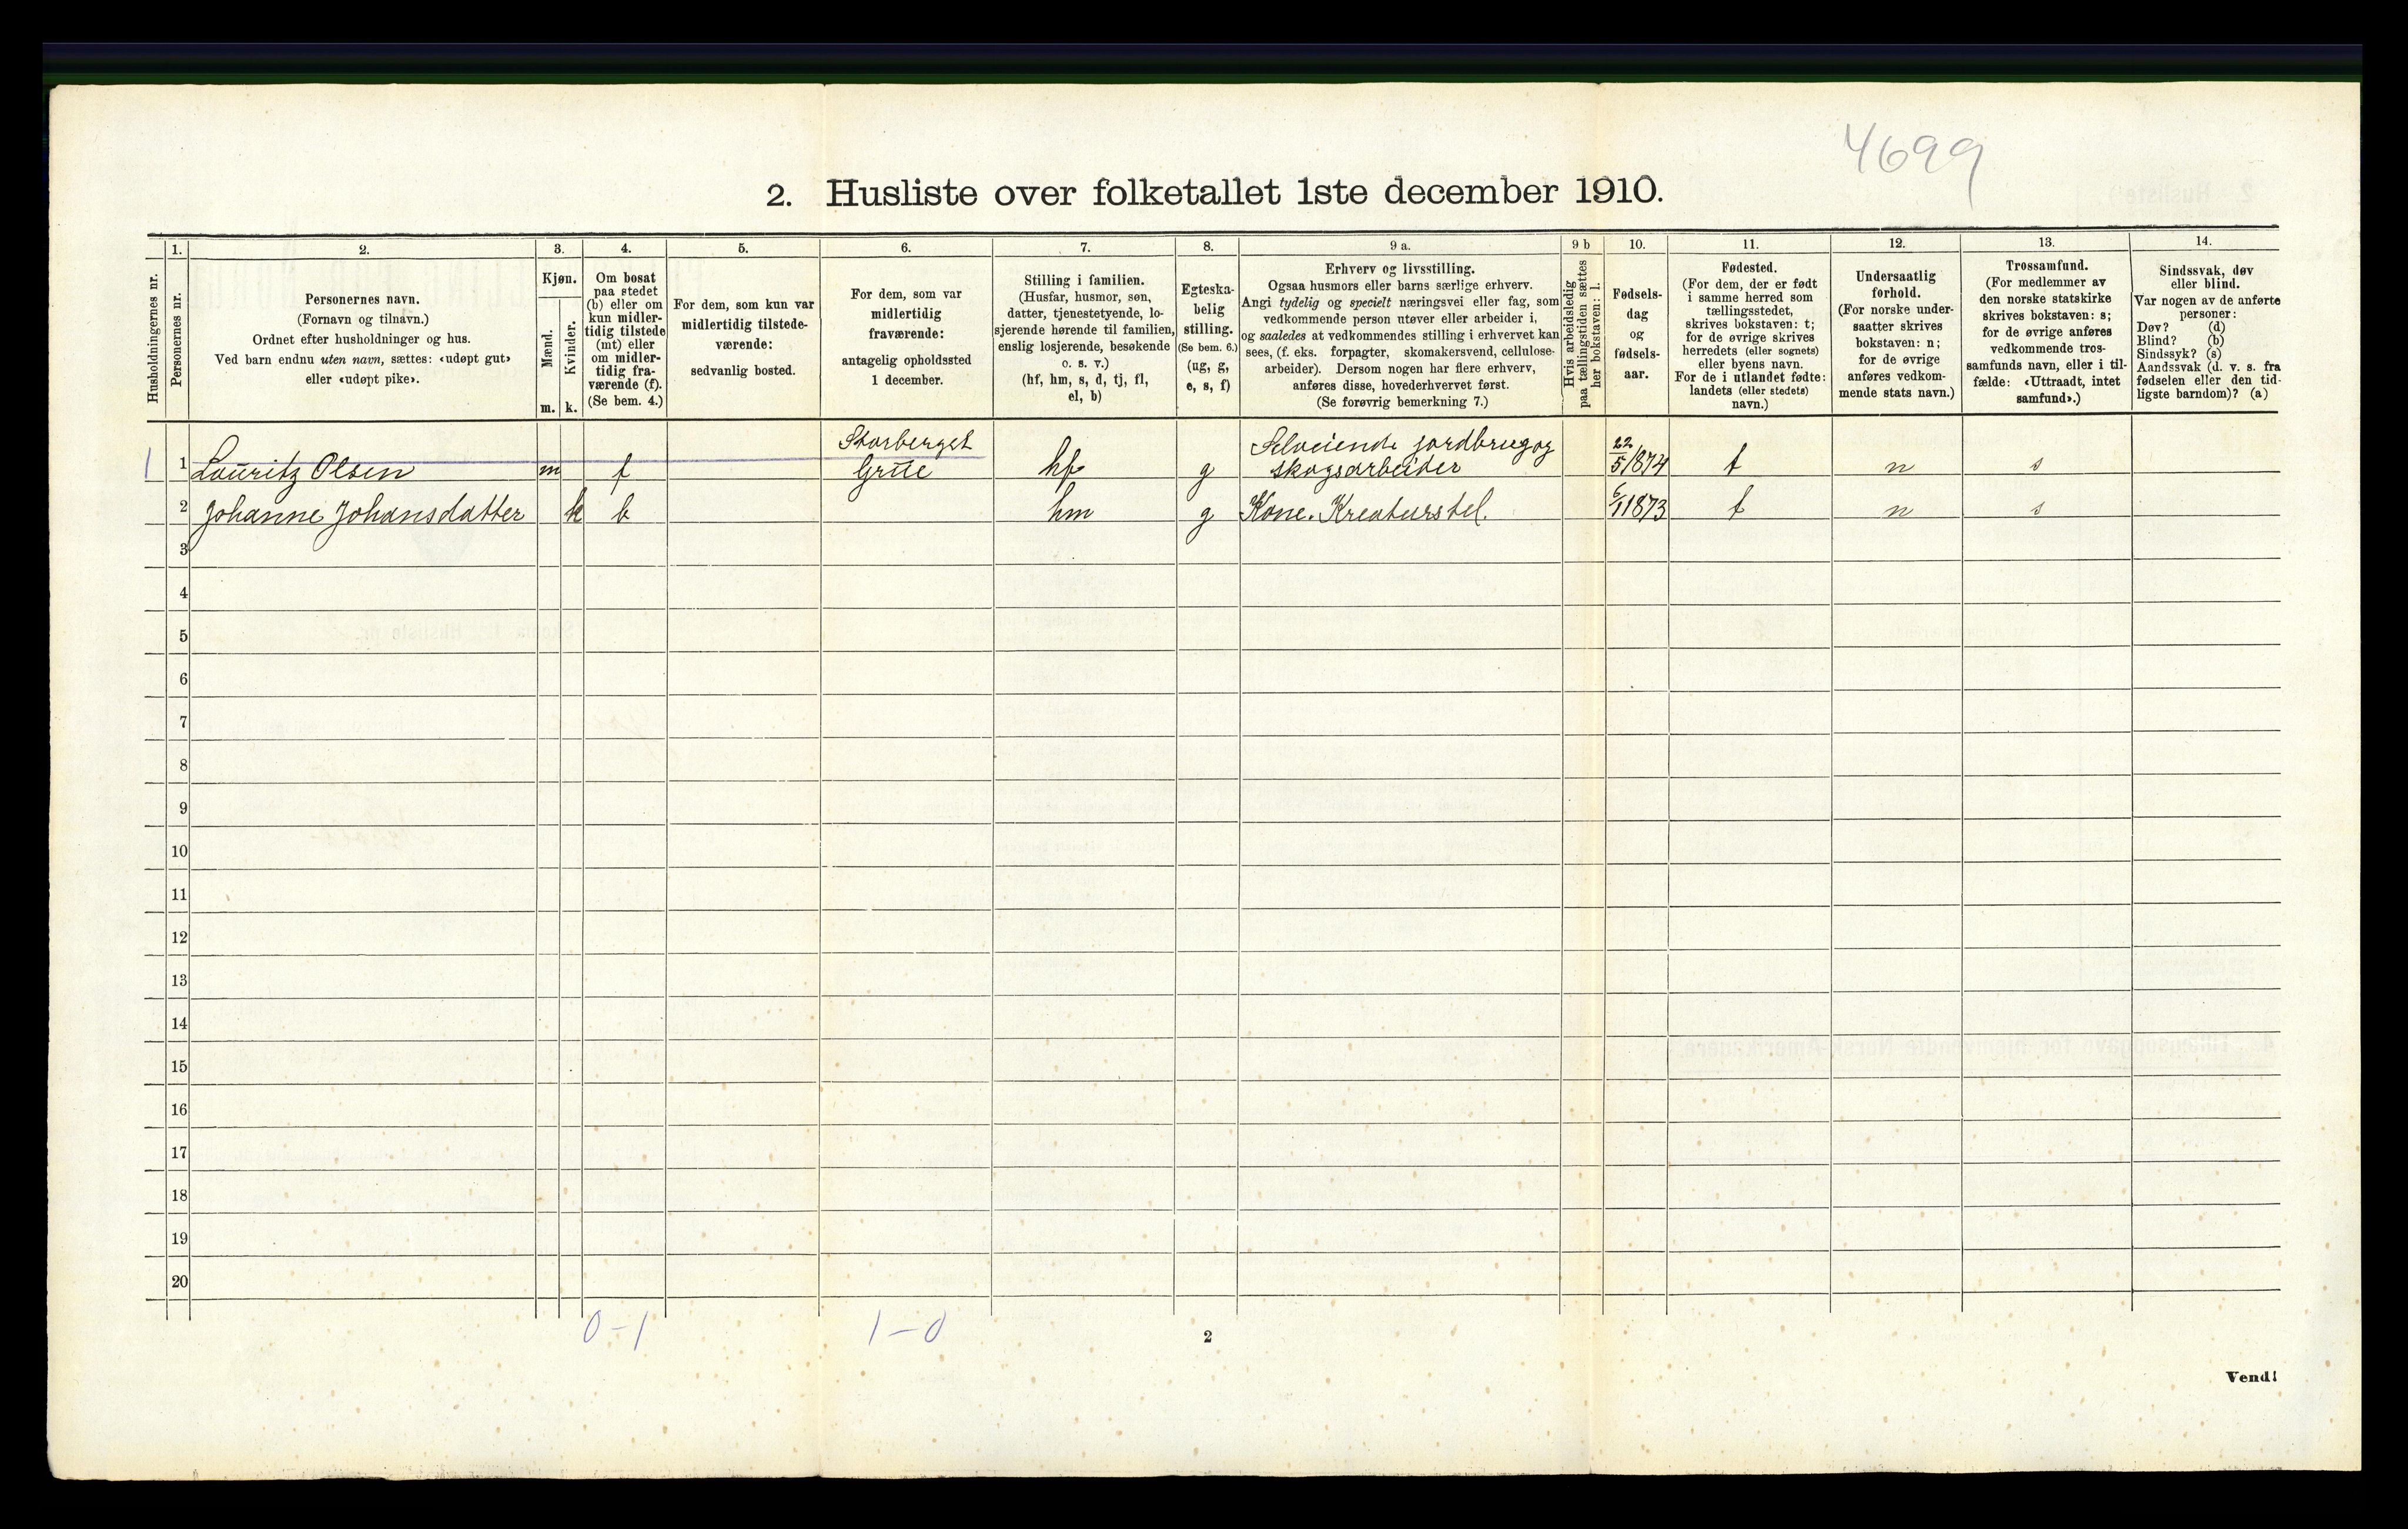 4699
2. Husliste over folketallet 1ste december 1910.
Husholdningernes nr.
1.
Personernes nr.
2.
Personernes navn.
(Fornavn og tilnavn.)
Ordnet efter husholdninger og hus.
Ved barn endnu uten navn, sættes: «udøpt gut»
eller «udøpt pike».
3.
Kjøn.
Mænd.
Kvinder.
m. k.
4.
Om bosat
paa stedet
(b) eller om
kun midler-
tidig tilstede
(mt) eller
om midler-
tidig fra-
værende (f).
(Se bem. 4.)
5.
For dem, som kun var
midlertidig tilstede-
værende:
sedvanlig bosted.
6.
For dem, som var
midlertidig
fraværende:
antagelig opholdssted
1 december.
7.
Stilling i familien.
(Husfar, husmor, søn,
datter, tjenestetyende, lo-
sjerende hørende til familien,
enslig losjerende, besøkende
o. s. v.)
(hf, hm, s, d, tj, fl,
el, b)
8.
Egteska-
belig
stilling.
(Se bem. 6.)
(ug, g,
e, s, f)
9 a.
Erhverv og livsstilling.
Ogsaa husmors eller barns særlige erhverv.
Angi tydelig og specielt næringsvei eller fag, som
vedkommende person utøver eller arbeider i,
og saaledes at vedkommendes stilling i erhvervet kan
sees, (f. eks. forpagter, skomakersvend, cellulose-
arbeider). Dersom nogen har flere erhverv,
anføres disse, hovederhvervet først.
(Se forøvrig bemerkning 7.)
9 b
Hvis arbeidsledig
paa tællingstiden sættes
her bokstaven: l.
10.
Fødsels-
dag
og
fødsels-
aar.
11.
Fødested.
(For dem, der er født
i samme herred som
tællingsstedet,
skrives bokstaven: t;
for de øvrige skrives
herredets (eller sognets)
eller byens navn.
For de i utlandet fødte:
landets (eller stedets)
navn.)
12.
Undersaatlig
forhold.
(For norske under-
saatter skrives
bokstaven: n;
for de øvrige
anføres vedkom-
mende stats navn.)
13.
Trossamfund.
(For medlemmer av
den norske statskirke
skrives bokstaven: s;
for de øvrige anføres
vedkommende tros-
samfunds navn, eller i til-
fælde: «Uttraadt, intet
samfund».)
14.
Sindssvak, døv
eller blind.
Var nogen av de anførte
personer:
Døv? (d)
Blind? (b)
Sindssyk? (s)
Aandssvak (d. v. s. fra
fødselen eller den tid-
ligste barndom)? (a)
Storberget Selveiende jordbrug og
1 1 Lauritz Olsen m f Grue hf g skogsarbeider 22/5 1874 t n s
2 Johanne Johansdatter k b hm g Kone. Kreaturstel. 6/1 1873 t n s
3
4
5
6
7
8
9
10
11
12
13
14
15
16
17
18
19
20
0-1 1-0
2
Vend!